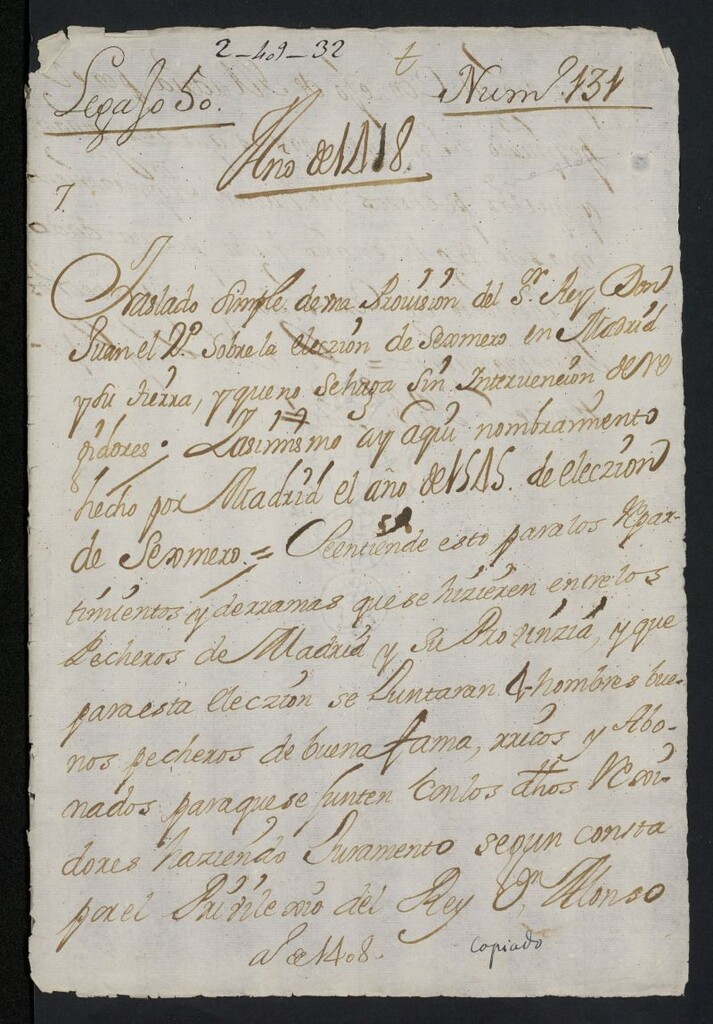 2-409-32
t
Legaxo 50.
Num.º 131
Año de 1418.
7.
Traslado simple de una Provision del S.r Rey Don
Juan el 2.º sobre la eleczion de Sexmero en Madrid
y su tierra, y que no se haga sin Intervencion de Re
gidores. Y asimismo ay aqui nombramiento
hecho por Madrid el año de 1515. de eleczion
de Sexmero. = Seentiende esto para los Repar-
timientos y derramas que se hizieren entre los
Pecheros de Madrid y su Provinzia, y que
para esta eleczion se Juntaran 4 hombres bue-
nos pecheros de buena fama, rricos y Abo-
nados para que se junten con los dhos Regi-
dores haziendo Juramento segun consta
por el Privilexio del Rey Dn Alonso
a.º de 1408.
copiado